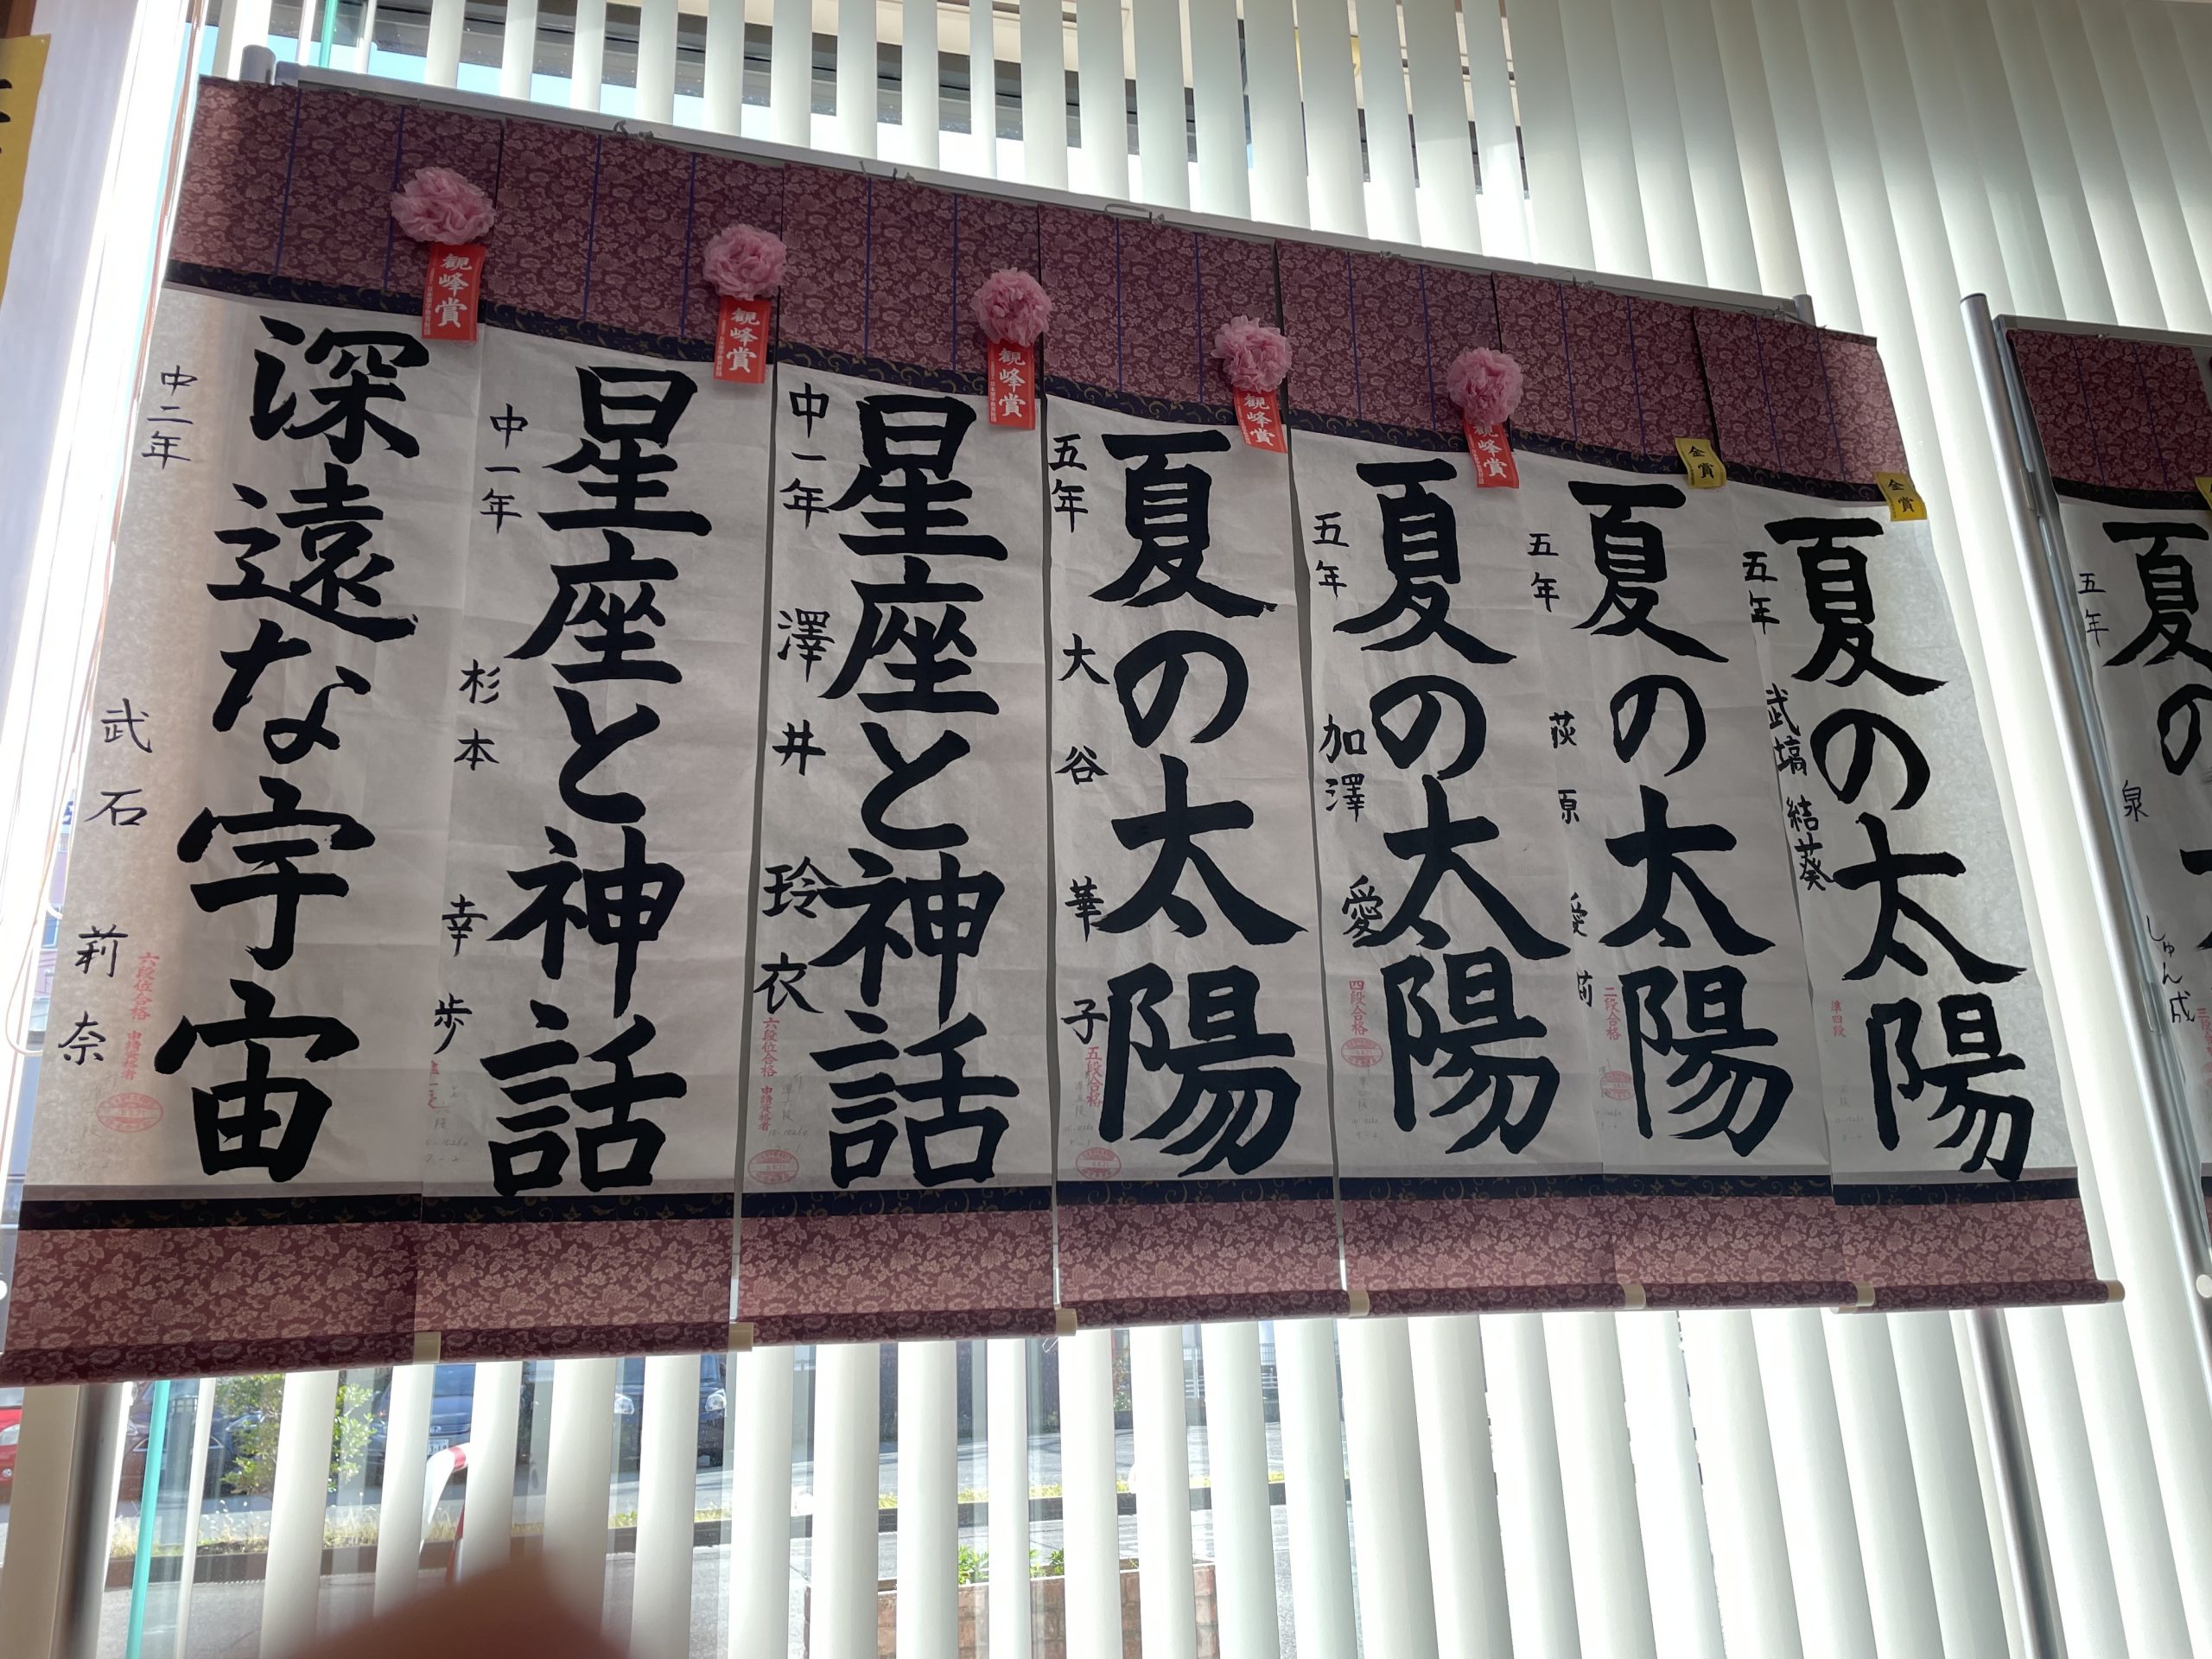 夏の
五年
泉
しゅん成
金賞
夏の太陽
五年
武塙 結葵
準四段
金賞
夏の太陽
五年
荻原 愛莉
二段合格
観峰賞
夏の太陽
五年
加澤 愛
四段合格
観峰賞
夏の太陽
五年
大谷 華子
五段合格
観峰賞
星座と神話
中一年
澤井 玲衣
六段位合格
観峰賞
星座と神話
中一年
杉本 幸歩
観峰賞
深遠な宇宙
中二年
武石 莉奈
六段位合格